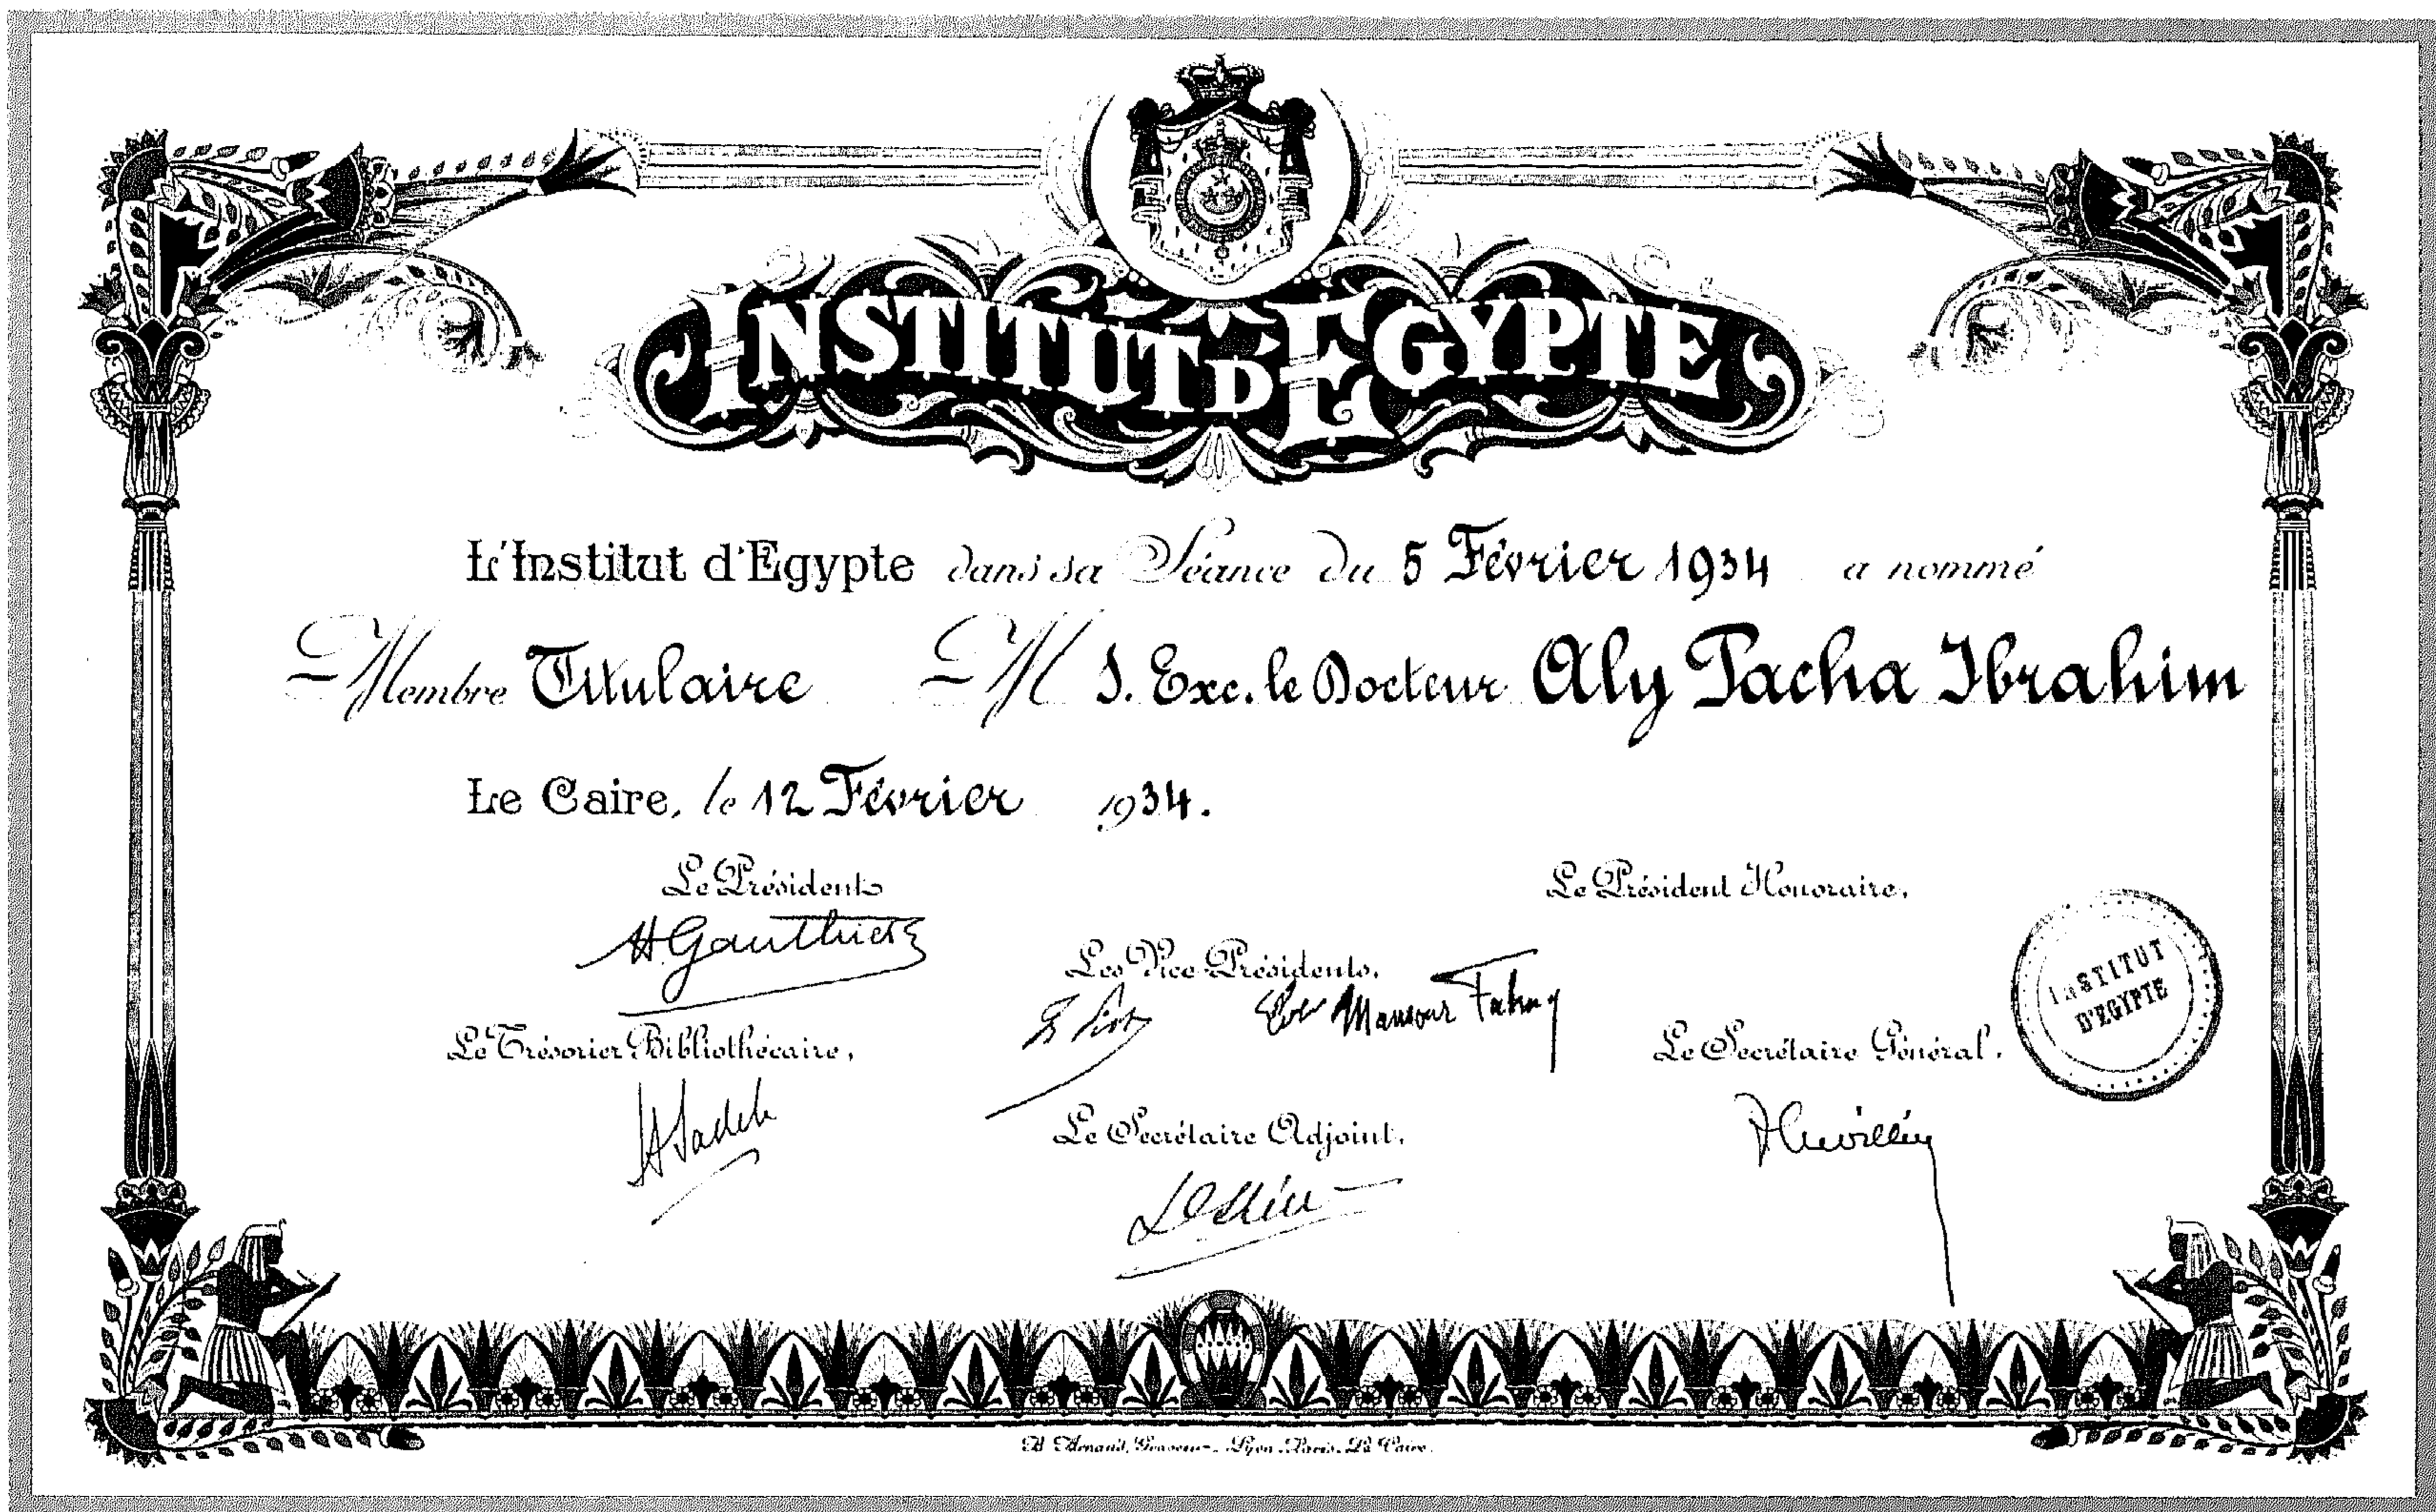 INSTITUT D'EGYPTE
L'Institut d'Egypte dans sa Séance du 5 Février 1934 a nommé
Membre Titulaire M S. Exc. le Docteur Aly Pacha Ibrahim
Le Caire, le 12 Février 1934.
Le Président
Le Président Honoraire,
H. Gauthier
Les Vice-Présidents,
Mansour Fahmy
INSTITUT
D'EGYPTE
Le Trésorier Bibliothécaire,
Le Secrétaire Général,
Le Secrétaire Adjoint,
Arnaud, Graveur - Lyon - Paris - Le Caire